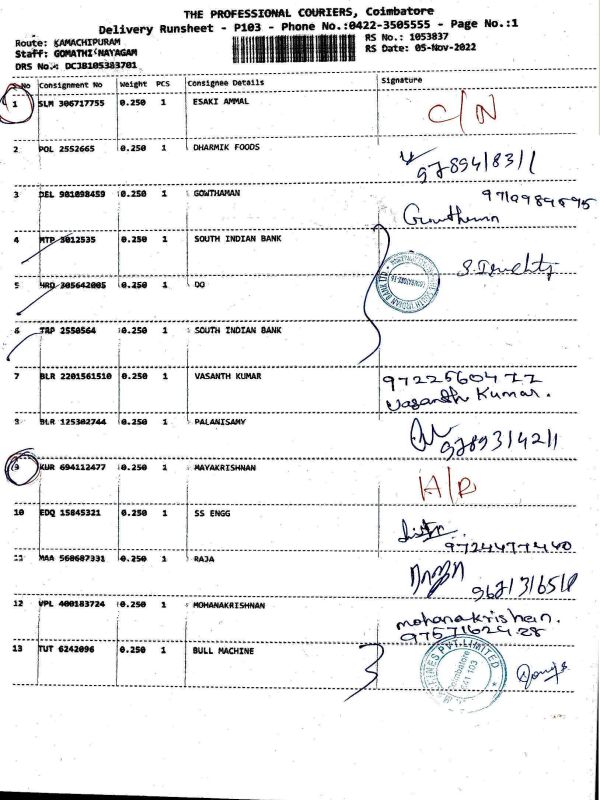 THE PROFESSIONAL COURIERS, Coimbatore
Delivery Runsheet - P103 - Phone No.:0422-3505555 - Page No.:1
Route: KAMACHIPURAM
RS No.: 1053837
Staff: GOMATHI NAYAGAM
RS Date: 05-Nov-2022
DRS No.: DCJB105383701
No Consignment No Weight PCS Consignee Details Signature
1 SLM 306717755 0.250 1 ESAKI AMMAL C/N
2 POL 2552665 0.250 1 DHARMIK FOODS
3 DEL 901098459 0.250 1 GOWTHAMAN
4 MTP 3012535 0.250 1 SOUTH INDIAN BANK
5 HRO 305642005 0.250 1 DO
6 TRP 2550564 0.250 1 SOUTH INDIAN BANK
7 BLR 2201561510 0.250 1 VASANTH KUMAR
Vasanth Kumar.
BLR 125302744 0.250 1 PALANISAMY
9 KUR 694112477 0.250 1 MAYAKRISHNAN
10 EDQ 15845321 0.250 1 SS ENGG
11 MAA 560687331 0.250 1 RAJA
12 VPL 400183724 0.250 1 MOHANAKRISHNAN
mohanakrishan.
13 TUT 6242096 0.250 1 BULL MACHINE